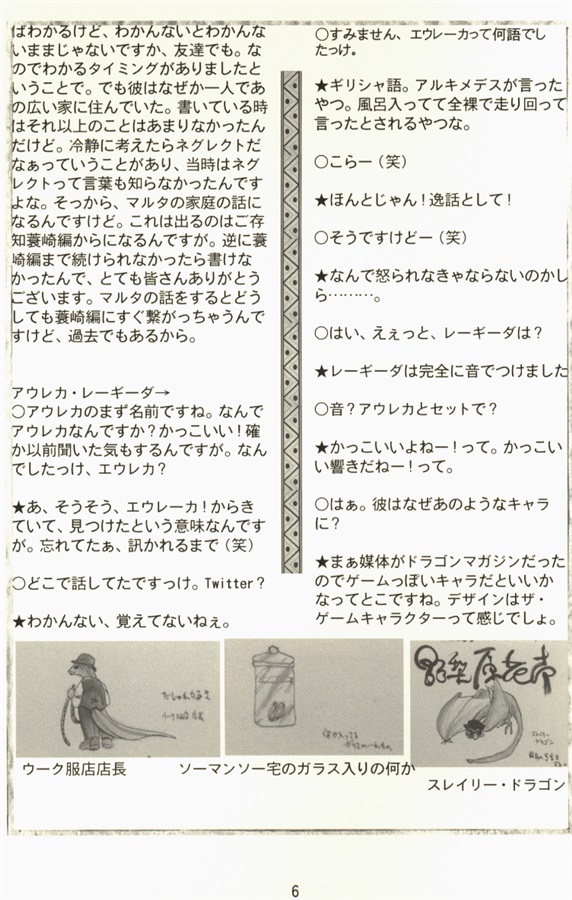 ばわかるけど、わかんないとわかんな
いままじゃないですか、友達でも。な
のでわかるタイミングがありましたと
いうことで。でも彼はなぜか一人であ
の広い家に住んでいた。書いている時
はそれ以上のことはあまりなかったん
だけど。冷静に考えたらネグレクトだ
なぁっていうことがあり、当時はネグ
レクトって言葉も知らなかったんです
よな。そっから、マルタの家庭の話に
なるんですけど。これは出るのはご存
知蓑崎編からになるんですが。逆に蓑
崎編まで続けられなかったら書けな
かったんで、とても皆さんありがとう
ございます。マルタの話をするとどう
しても蓑崎編にすぐ繋がっちゃうんで
すけど、過去でもあるから。
アウレカ・レーギーダ→
○アウレカのまず名前ですね。なんで
アウレカなんですか？かっこいい！確
か以前聞いた気もするんですが。なん
でしたっけ、エウレカ？
★あ、そうそう、エウレーカ！からき
ていて、見つけたという意味なんです
が。忘れてたぁ、訊かれるまで（笑）
○どこで話してたですっけ。Twitter？
★わかんない、覚えてないねぇ。
○すみません、エウレーカって何語でし
たっけ。
★ギリシャ語。アルキメデスが言った
やつ。風呂入ってて全裸で走り回って
言ったとされるやつな。
○こらー（笑）
★ほんとじゃん！逸話として！
○そうですけどー（笑）
★なんで怒られなきゃならないのかし
ら………。
○はい、えぇっと、レーギーダは？
★レーギーダは完全に音でつけました
○音？アウレカとセットで？
★かっこいいよねー！って。かっこい
い響きだねー！って。
○はぁ。彼はなぜあのようなキャラ
に？
★まぁ媒体がドラゴンマガジンだった
のでゲームっぽいキャラだといいか
なってとこですね。デザインはザ・
ゲームキャラクターって感じでしょ。
ウーク服店店長
ソーマンソー宅のガラス入りの何か
スレイリー・ドラゴン
6